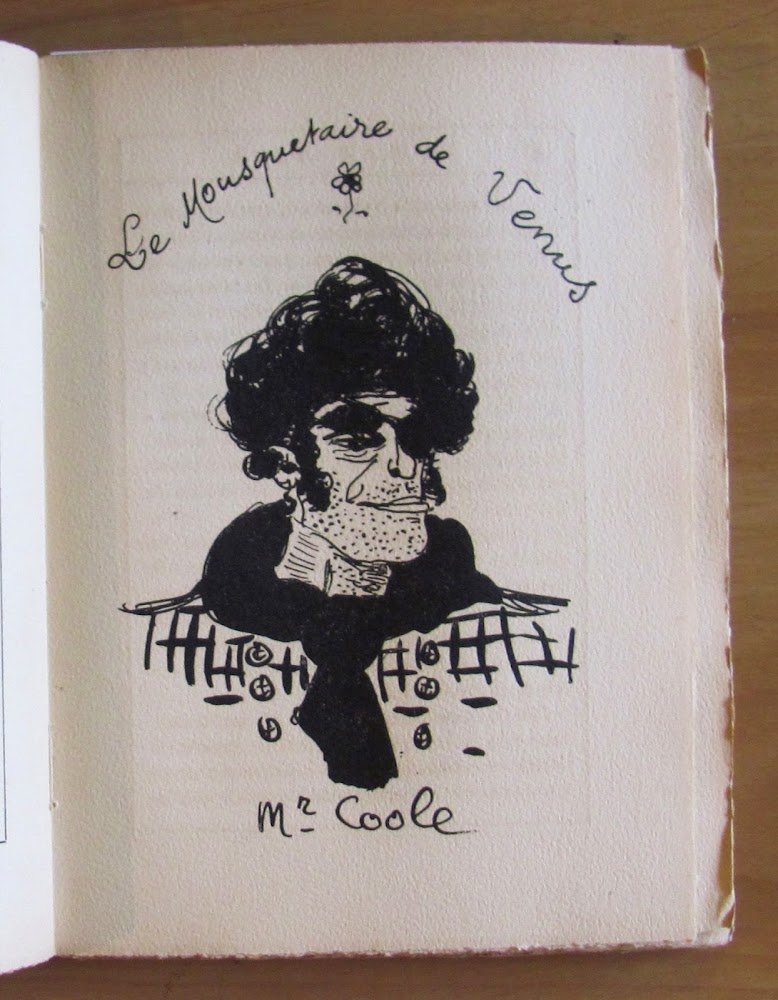 Le Mousquetaire de Venus
Mr Coole